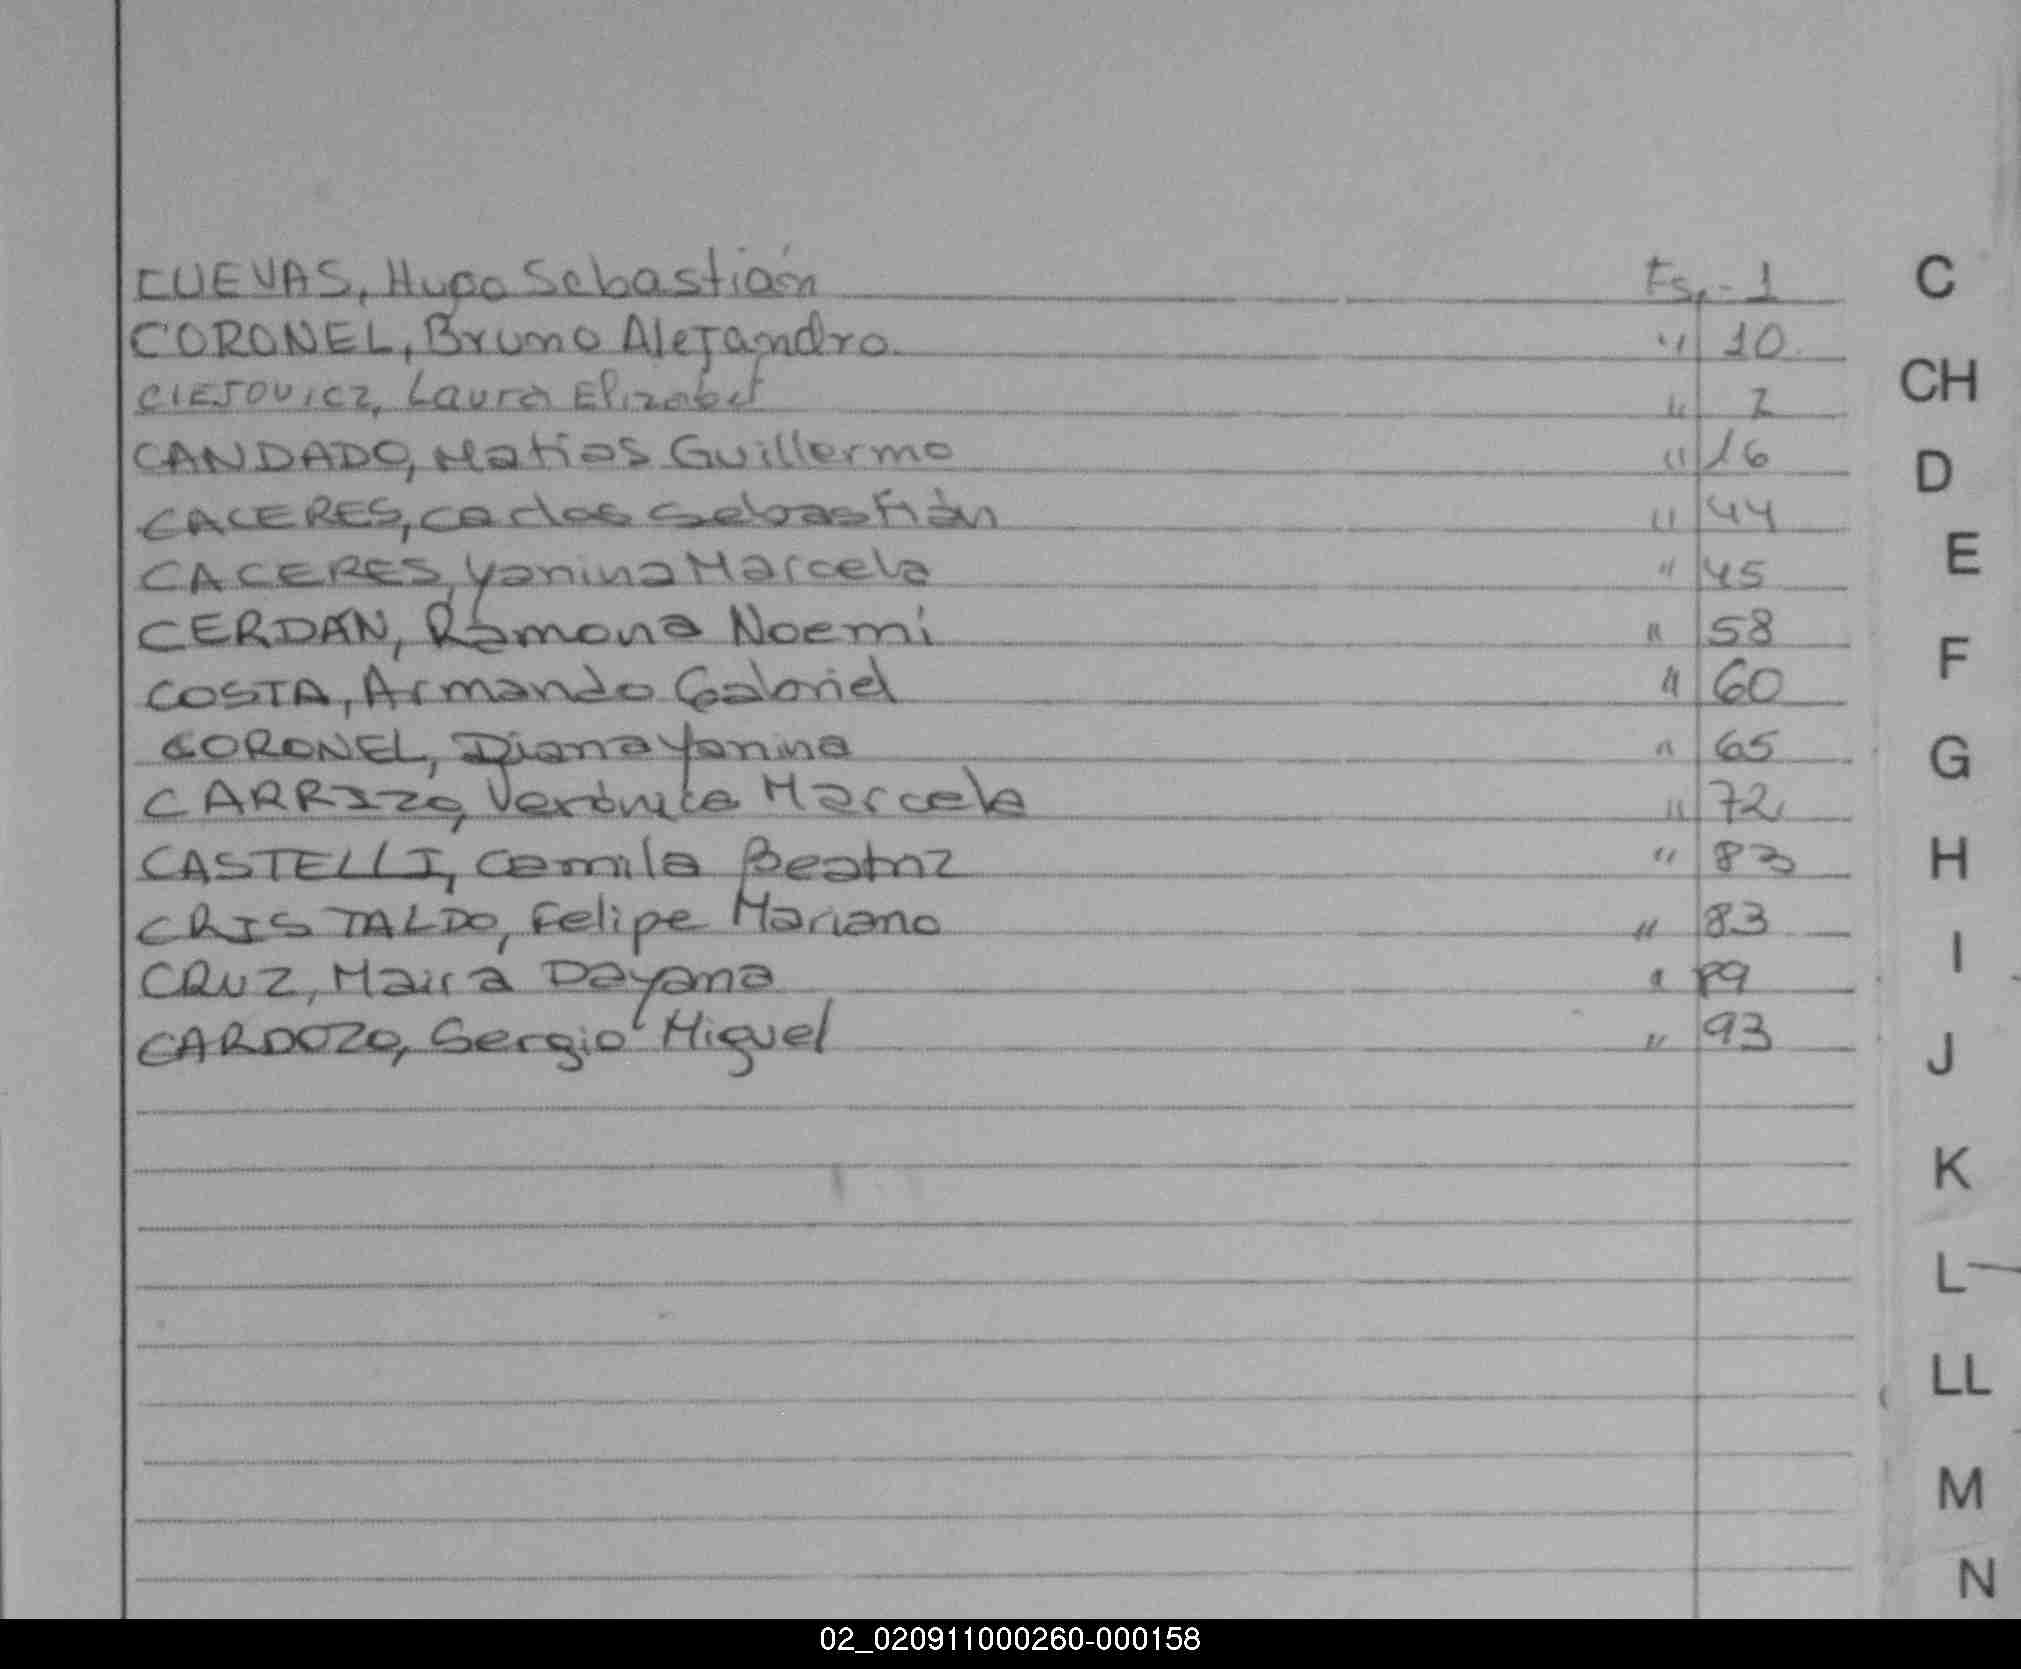 CUEVAS, Hugo Sebastián Fs,- 1
CORONEL, Bruno Alejandro. " 10.
CIEJOVICZ, Laura Elizabet " 2
CANDADO, Matias Guillermo " 16
CACERES, Carlos Sebastián " 44
CACERES, Yanina Marcela " 45
CERDAN, Ramona Noemi " 58
COSTA, Armando Gabriel " 60
CORONEL, Diana Yanina " 65
CARRIZO, Verónica Marcela " 72
CASTELLI, Camila Beatriz " 83
CRISTALDO, Felipe Mariano " 83
CRUZ, Maira Dayana " 89
CARDOZO, Sergio Miguel " 93
C
CH
D
E
F
G
H
I
J
K
L
LL
M
N
02_020911000260-000158